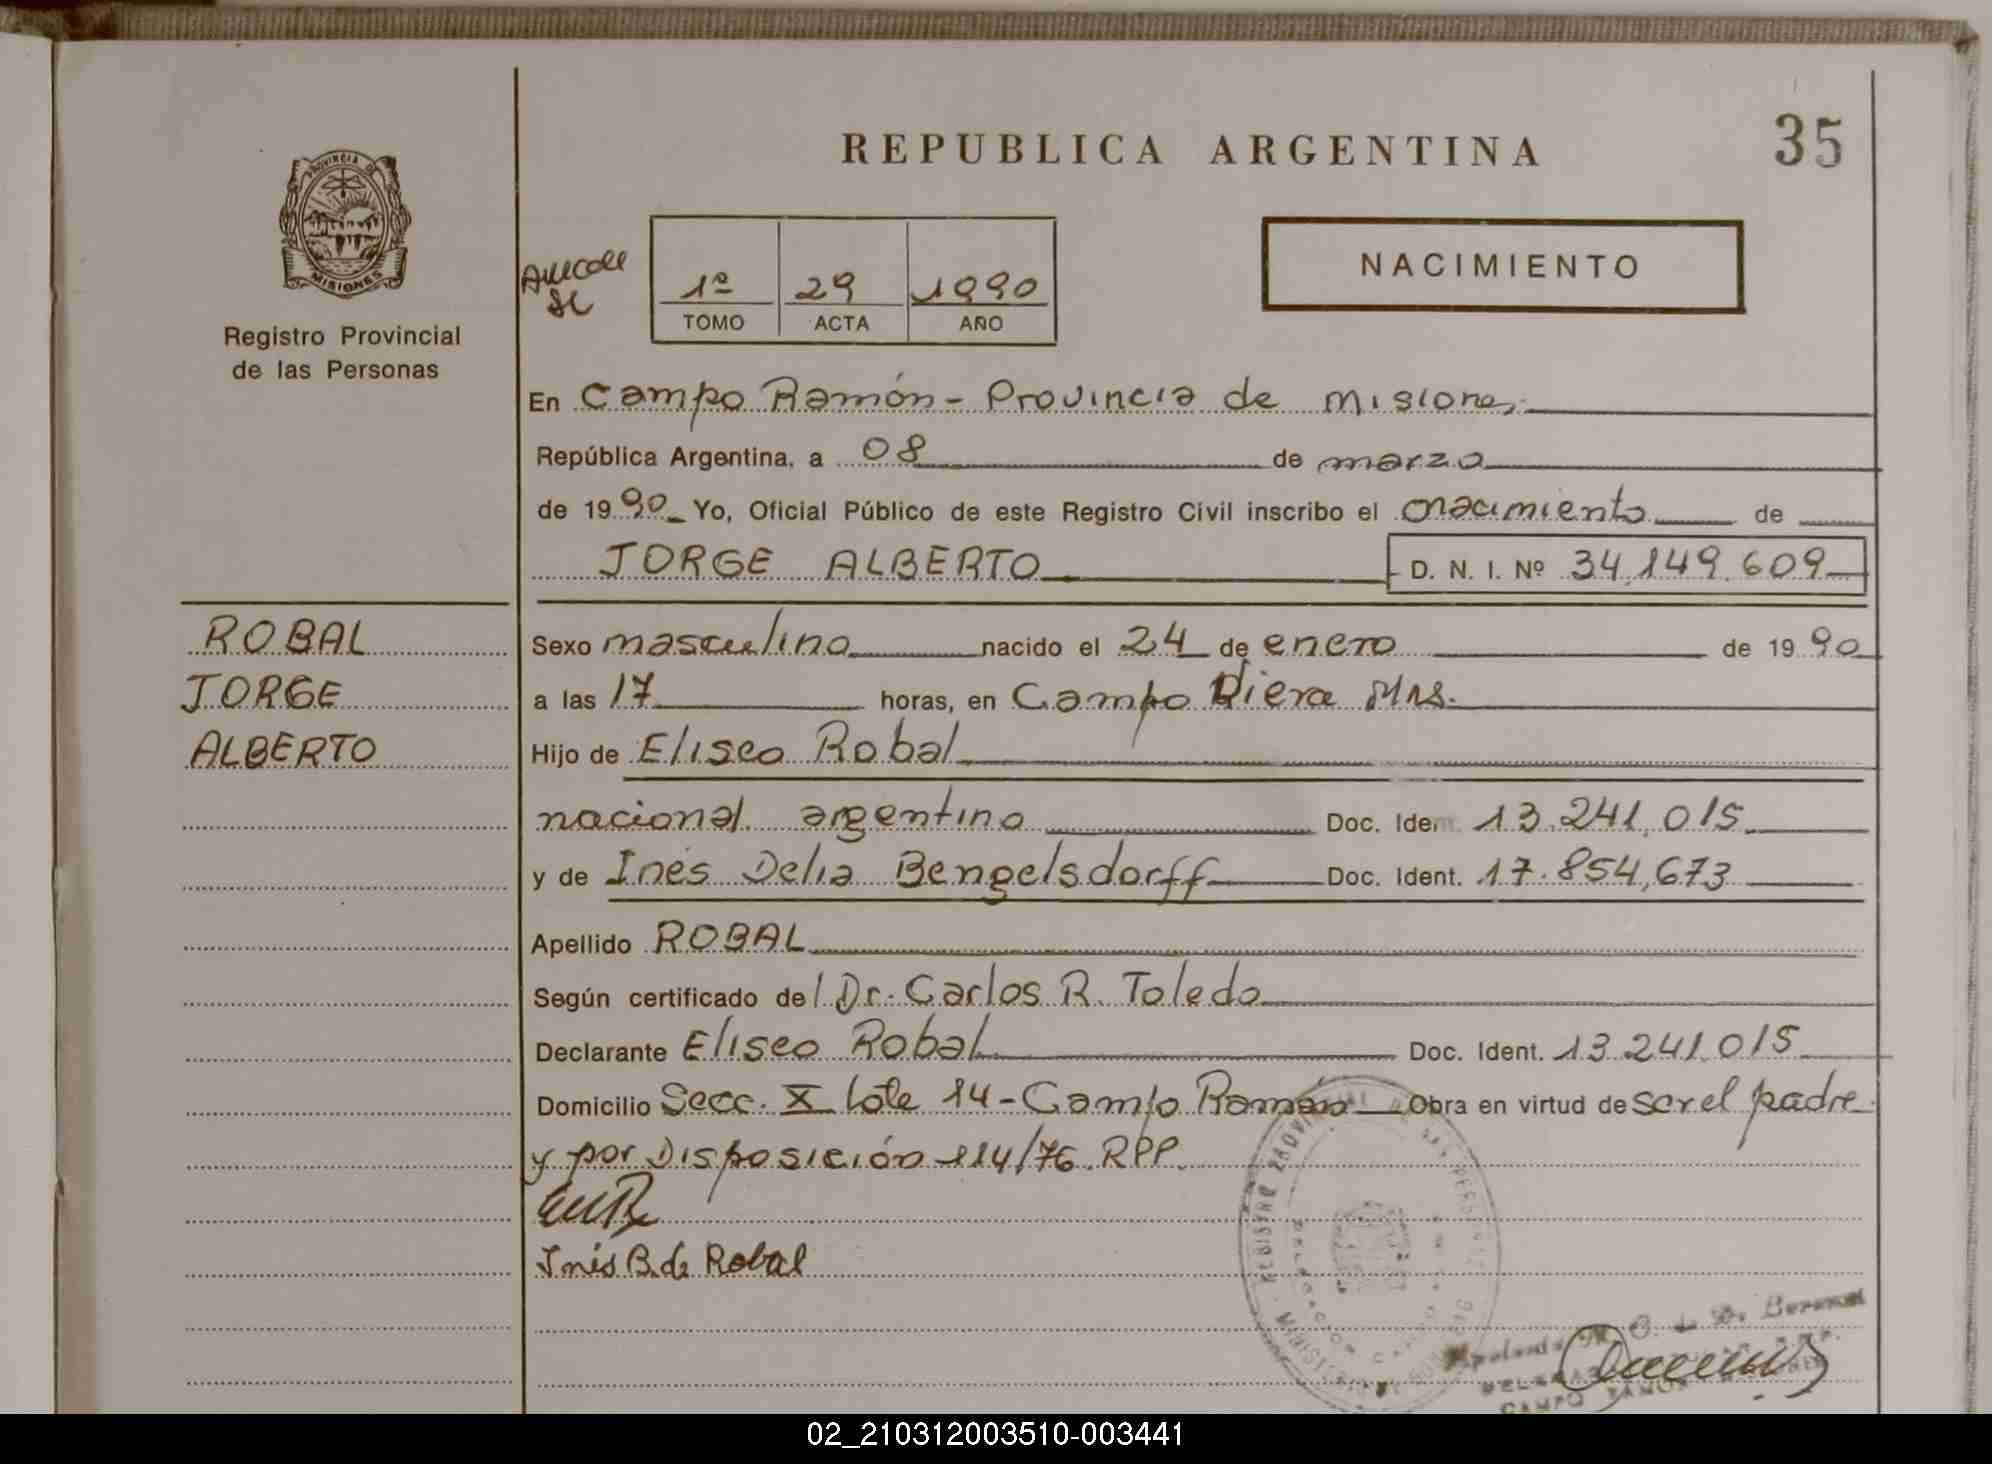 35
REPUBLICA ARGENTINA
PROVINCIA DE
MISIONES
Registro Provincial
de las Personas
1º 29 1990
TOMO ACTA AÑO
NACIMIENTO
En Campo Ramón - Provincia de Misiones.
República Argentina, a 08 de marzo
de 1990 Yo, Oficial Público de este Registro Civil inscribo el nacimiento de
JORGE ALBERTO D. N. I. Nº 34.149.609
ROBAL
JORGE
ALBERTO
Sexo masculino nacido el 24 de enero de 1990
a las 17 horas, en Campo Viera Mns.
Hijo de Eliseo Robal
nacional. argentino Doc. Ident. 13.241.015
y de Inés Delia Bengelsdorff Doc. Ident. 17.854,673
Apellido ROBAL
Según certificado del Dr. Carlos R. Toledo
Declarante Eliseo Robal Doc. Ident. 13.241.015
Domicilio Secc. X lote 14 - Campo Ramón Obra en virtud de ser el padre
y por Disposición 114/76. RPP.
Inés B. de Robal
CAMPO RAMON
02_210312003510-003441